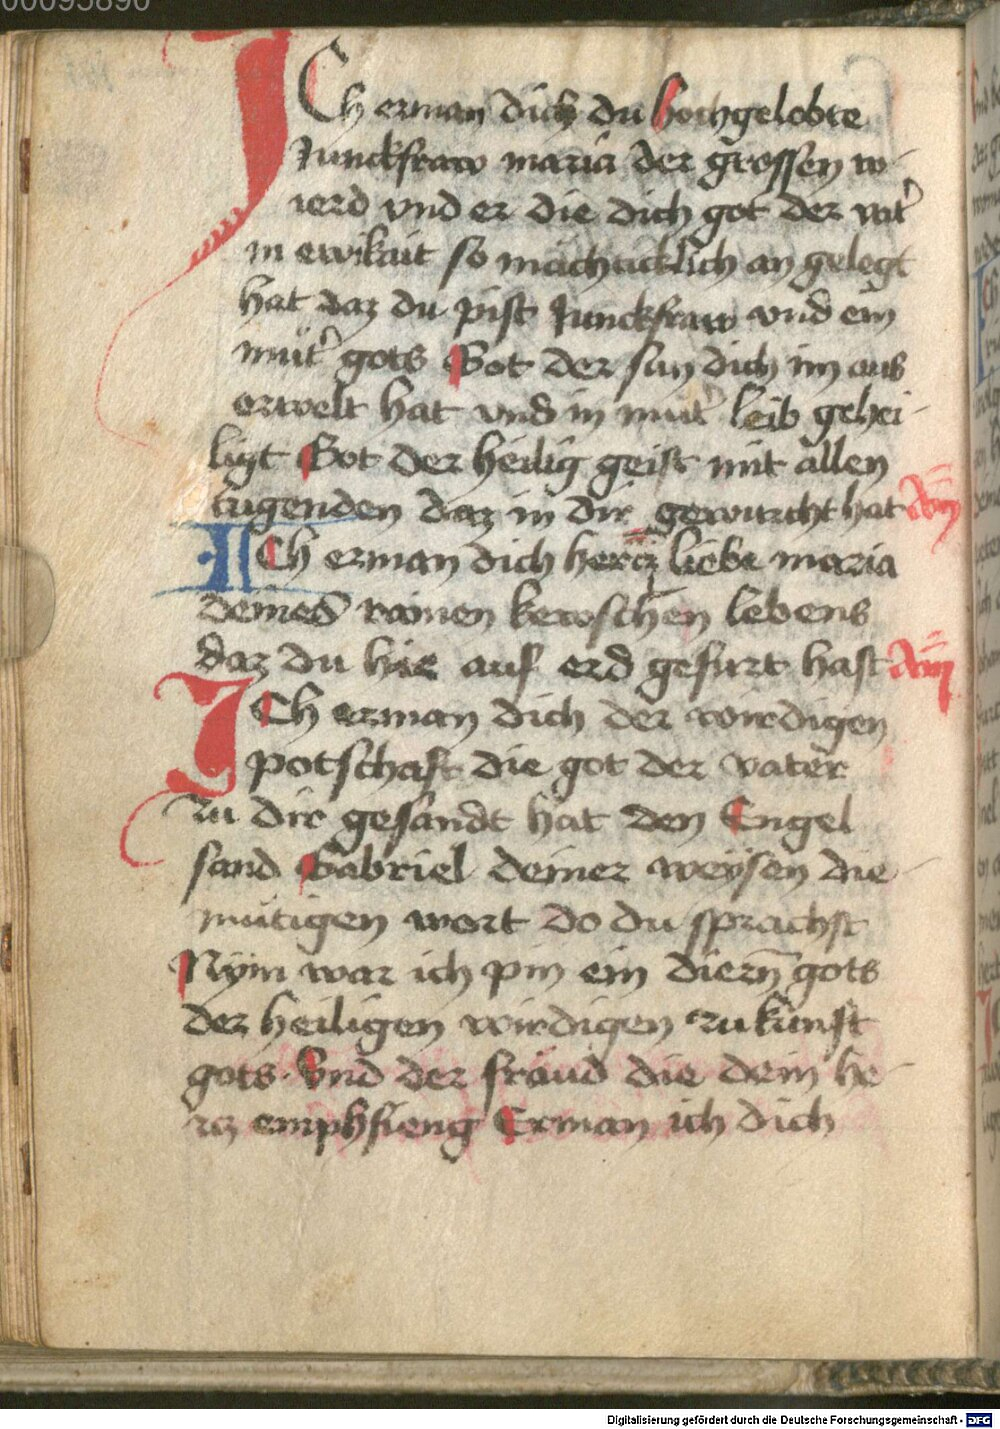 00095890
ICh erman dich du hochgelobte
Junckfraw maria der grossen w-
ierd vnd er die dich got der vat̉
in ewikait so mächticklich an gelegt
hat daz du pist Junckfraw vnd ein
mut̉ gots Got der sun dich im aus
erwelt hat vnd in mut̉ leib gehei-
ligt Got der heilig geist mit allen
tugenden daz in dir gewurcht hat Am̃
ICh erman dich hercz liebe maria
deines rainen kewschen lebens
daz du hie auf erd gefurt hast Am̃
ICh erman dich der wirdigen
potschaft die got der vater
zu dir gesandt hat den Engel
sand Gabriel deiner weysen die-
mutigen wort do du sprachst
Nym war ich pin ein diern̄ gots
der heiligen wirdigen zukunft
gots. Vnd der fräud die dein he-
rcz emphfieng Erman ich dich
Digitalisierung gefördert durch die Deutsche Forschungsgemeinschaft - DFG